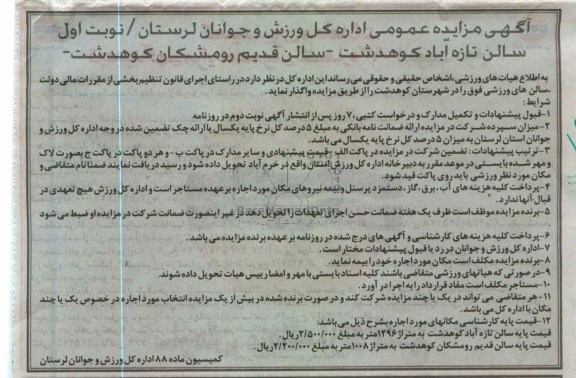 آگهی مزایده عمومی اداره کل ورزش و جوانان لرستان / نوبت اول
سالن تازه آباد کوهدشت -سالن قدیم رومشکان کوهدشت-
به اطلاع هیات های ورزشی،اشخاص حقیقی و حقوقی می رساند این اداره کل در نظر دارد در راستای اجرای قانون تنظیم بخشی از مقررات مالی دولت
،سالن های ورزشی فوق را در شهرستان کوهدشت را از طریق مزایده واگذار نماید.
شرایط:
۱-قبول پیشنهادات و تکمیل مدارک و درخواست کتبی، ۷ روز پس از انتشار آگهی نوبت دوم در روزنامه
۲-میزان سپرده شرکت در مزایده ارائه ضمانت نامه بانکی به مبلغ ۵ درصد کل نرخ پایه یکسال یا ارائه چک تضمین شده در وجه اداره کل ورزش و
جوانان استان لرستان به میزان ۵ درصد کل نرخ پایه یکسال می باشد.
۳-ترتیب پیشنهادات: تضمین شرکت در مزایده در پاکت الف -قیمت پیشنهادی و سایر مدارک در پاکت ب - و هر دو پاکت در پاکت ج بصورت لاک
و مهر شده بایستی در موعد مقرر به دبیرخانه اداره کل ورزش استان واقع در خرم آباد تحویل داده شود و رسید دریافت نمایند ضمنا نام متقاضی و
مکان مورد نظر ورزشی باید روی پاکت قید شود.
۴-پرداخت کلیه هزینه های آب ،برق ،گاز ،دستمزد پرسنل و بیمه نیروهای مکان مورد اجاره بر عهده مستاجر است و اداره کل ورزش هیچ تعهدی در
قبال آنها ندارد.
۵-برنده مزایده موظف است ظرف یک هفته ضمانت حسن اجرای تعهدات را تحویل دهد در غیر اینصورت ضمانت شرکت در مزایده او ضبط می شود
۶-پرداخت کلیه هزینه های کارشناسی و آگهی های درج شده در روزنامه بر عهده برنده مزایده می باشد.
۷-اداره کل ورزش و جوانان در رد یا قبول پیشنهادات مختار است.
۸-برنده مزایده مکلف است مکان مورد اجاره خود را بیمه نماید.
۹-در صورتی که هیاتهای ورزشی متقاضی باشند کلیه اسناد بایستی با مهر و امضا رییس هیات تحویل داده شوند.
۱۰-مستاجر مکلف است مفاد قرارداد را به اجرا در آورد.
۱۱-هر متقاضی می تواند در یک یا چند مزایده شرکت کند و در صورت برنده شده در بیش از یک مزایده انتخاب مورد اجاره در خصوص یک یا چند
مکان با اداره کل می باشد.
۱۲-قیمت پایه کارشناسی مکانهای مورد اجاره بشرح ذیل می باشد:
قیمت پایه سالن تازه آباد کوهدشت به متراژ ۱۲۹۶ متر به مبلغ ۲/۵۰۰/۰۰۰ ریال.
قیمت پایه سالن قدیم رومشکان کوهدشت به متراژ ۱۰۰۸ متر به مبلغ ۲/۲۰۰/۰۰۰ ریال.
کمیسیون ماده ۸۸ اداره کل ورزش و جوانان لرستان